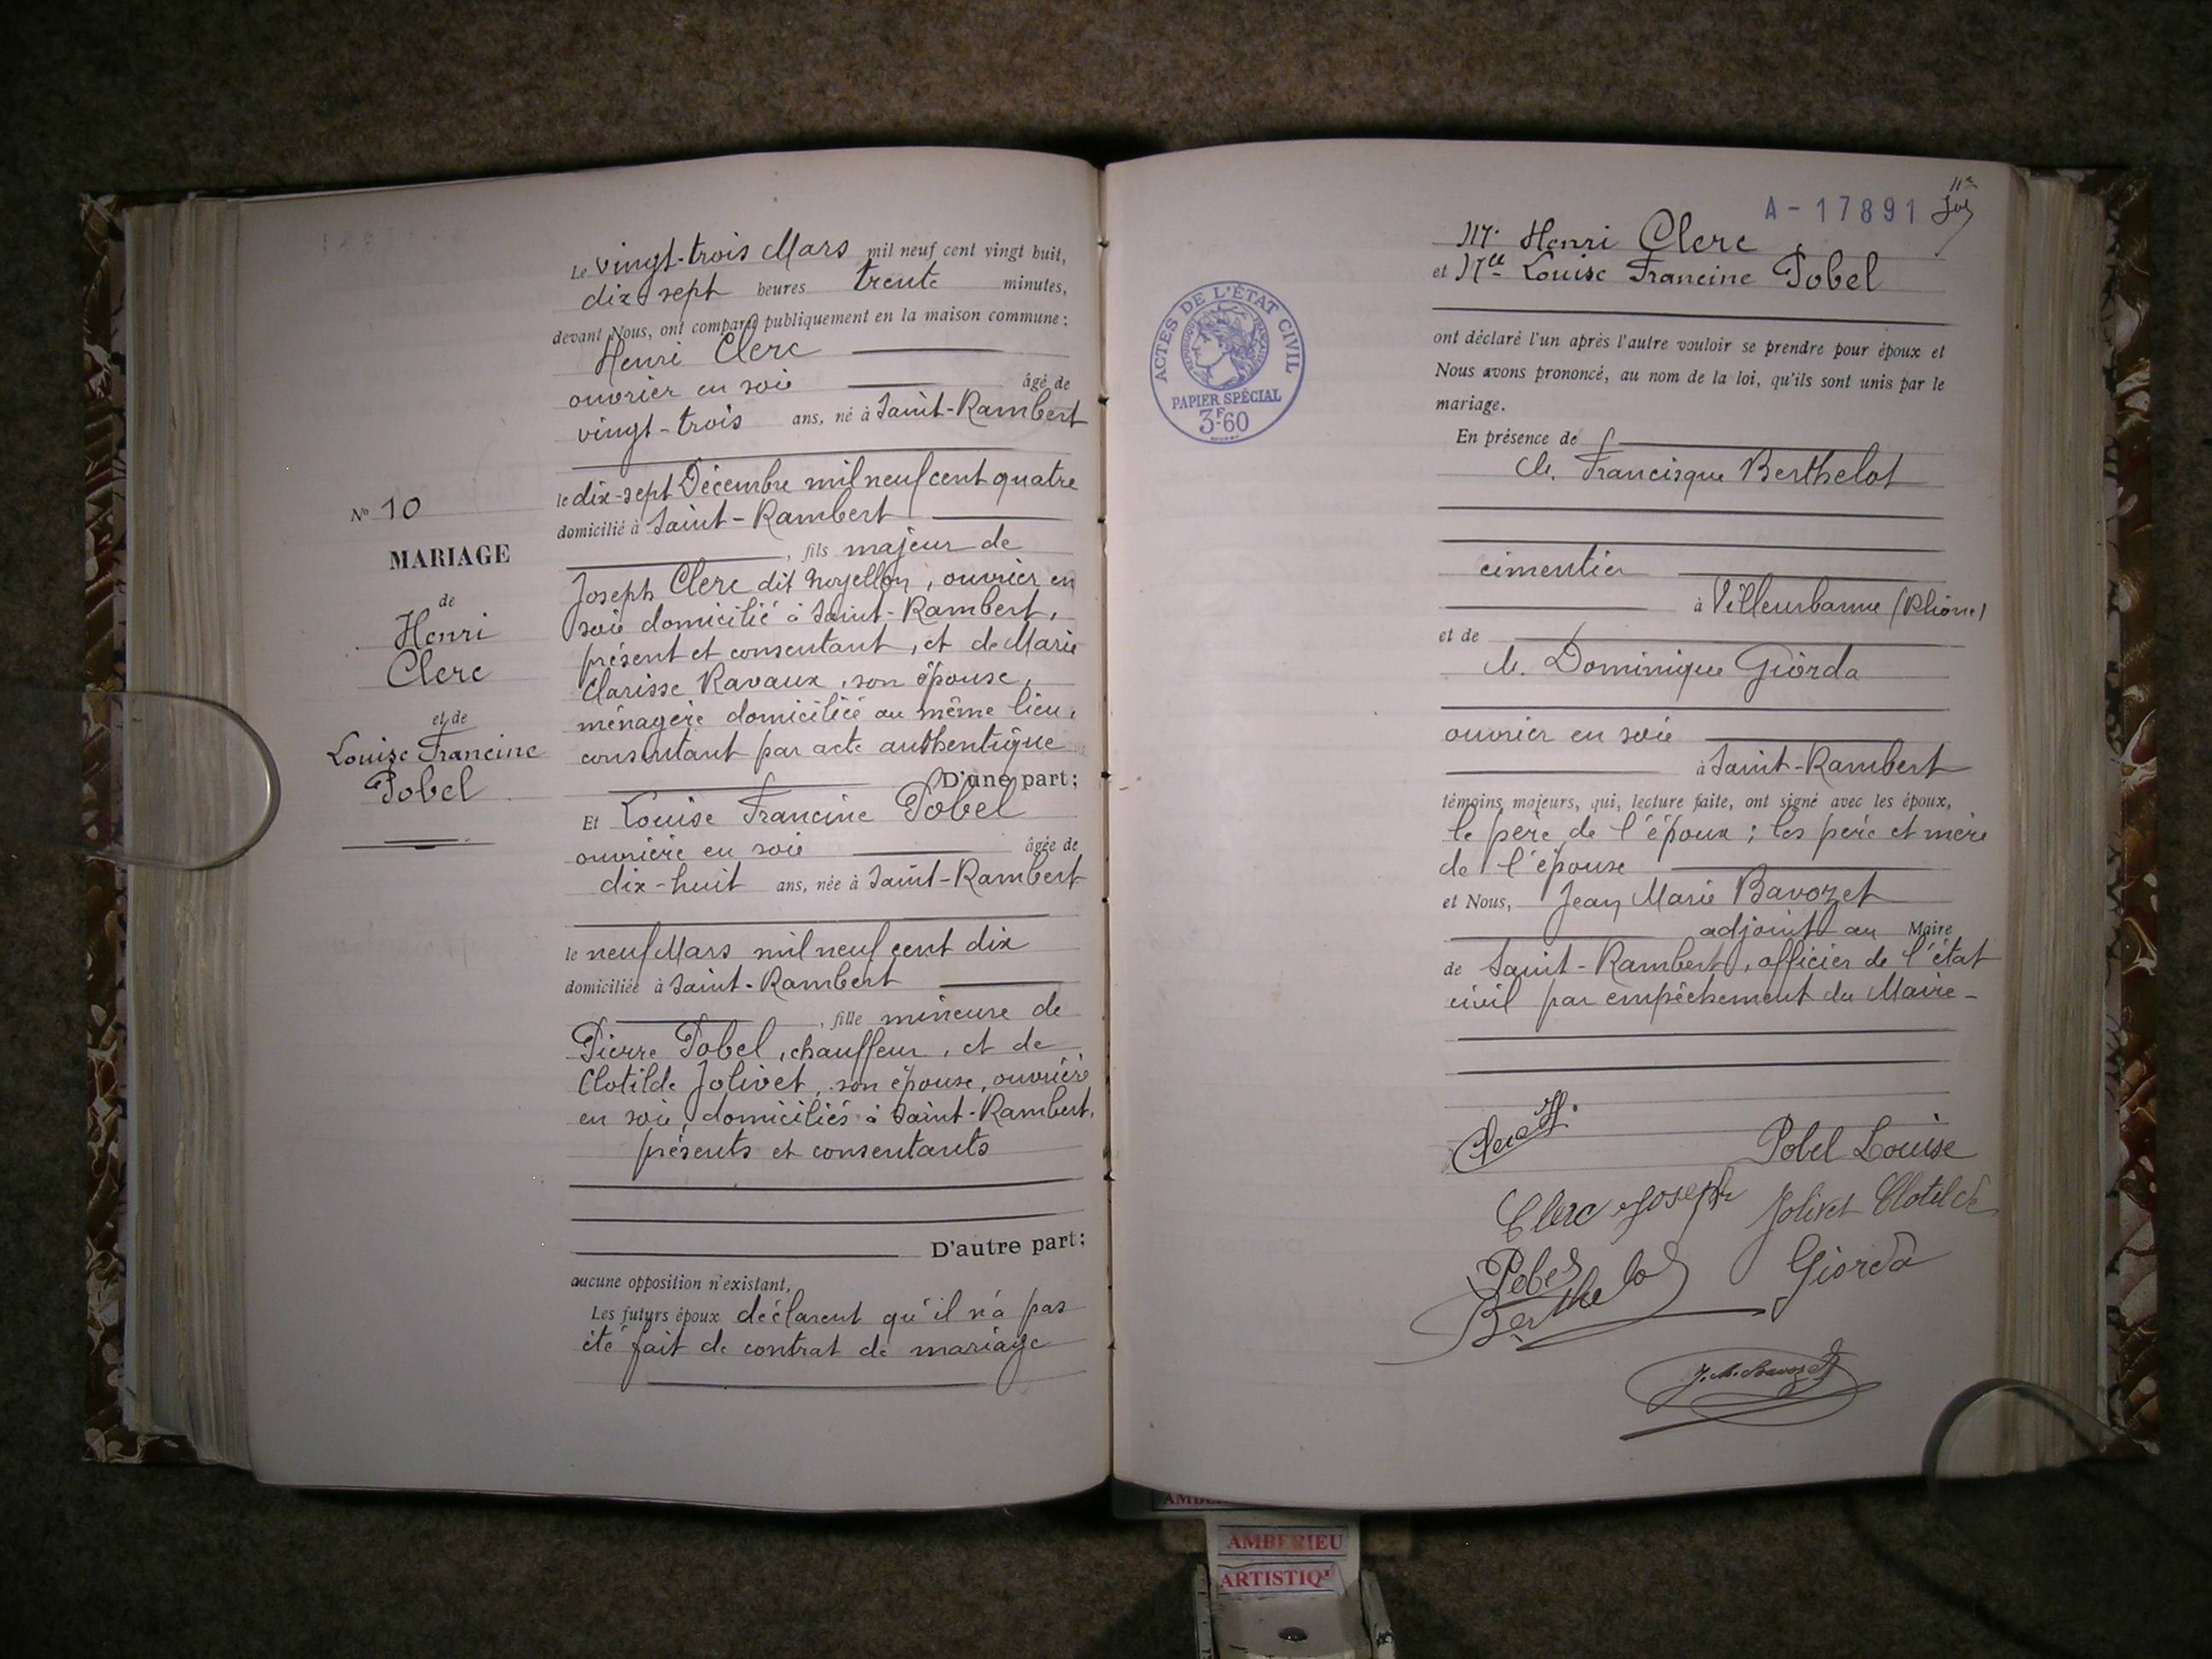 Le vingt-trois Mars mil neuf cent vingt huit,
dix-sept heures trente minutes,
devant Nous, ont comparu publiquement en la maison commune :
Henri Clerc
ouvrier en soie âgé de
vingt-trois ans, né à Saint-Rambert
le dix-sept Décembre mil neuf cent quatre
domicilié à Saint-Rambert
, fils majeur de
Joseph Clerc dit , ouvrier en
soie domicilié à Saint-Rambert,
présent et consentant, et de Marie
Clarisse Ravaux, son épouse,
ménagère domiciliée au même lieu,
consentant par acte authentique
D'une part ;
Et Louise Francine Pobel
ouvrière en soie âgée de
dix-huit ans, née à Saint-Rambert
le neuf Mars mil neuf cent dix
domiciliée à Saint-Rambert
, fille mineure de
Pierre Pobel, chauffeur, et de
Clotilde Jolivet, son épouse, ouvrière
en soie, domiciliés à Saint-Rambert,
présents et consentants
D'autre part ;
aucune opposition n'existant,
Les futurs époux déclarent qu'il n'a pas
été fait de contrat de mariage
N° 10
MARIAGE
de
Henri
Clerc
et de
Louise Francine
Pobel
A - 17891
Mr Henri Clerc
et Mlle Louise Francine Pobel
ont déclaré l'un après l'autre vouloir se prendre pour époux et
Nous avons prononcé, au nom de la loi, qu'ils sont unis par le
mariage.
En présence de
M. Francisque Berthelot
cimentier
à Villeurbanne (Rhône)
et de
M. Dominique Giorda
ouvrier en soie
à Saint-Rambert
témoins majeurs, qui, lecture faite, ont signé avec les époux,
le père de l'époux ; les père et mère
de l'épouse
et Nous, Jean Marie Bavozet
adjoint au Maire
de Saint-Rambert, officier de l'état
civil par empêchement du Maire -
Clerc H.
Pobel Louise
Clerc Joseph
Jolivet Clotilde
Pobel
Giorda
Berthelot
J. M. Bavozet
ACTES DE L'ÉTAT CIVIL
PAPIER SPÉCIAL
3F60
AMBERIEU
ARTISTIQ